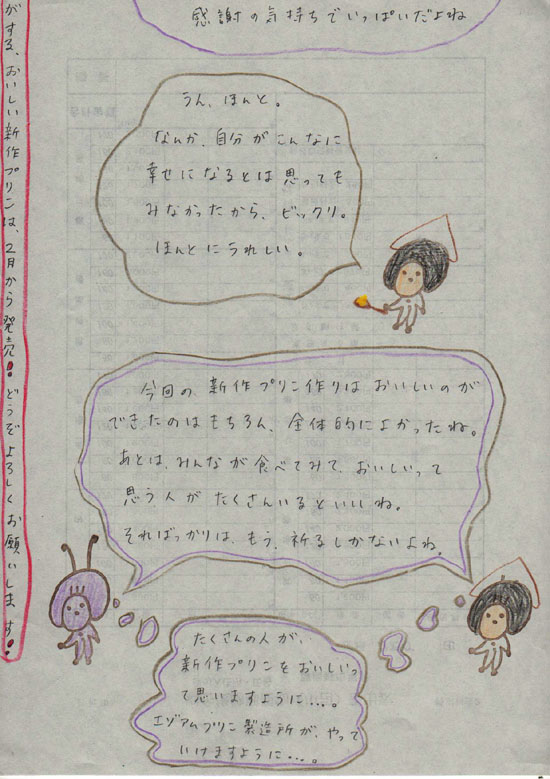 感謝の気持ちでいっぱいだよね
うん、ほんと。
なんか、自分がこんなに
幸せになるとは思っても
みなかったから、ビックリ。
ほんとにうれしい。
今回の新作プリン作りはおいしいのが
できたのはもちろん、全体的によかったね。
あとは、みんなが食べてみて、おいしいって
思う人がたくさんいるといいね。
そればっかりは、もう、祈るしかないよね。
たくさんの人が、
新作プリンをおいしいっ
て思いますように…。
エゾアムプリン製造所が、やって
いけますように…。
がする、おいしい新作プリンは、2月から発売！どうぞよろしくお願いします！